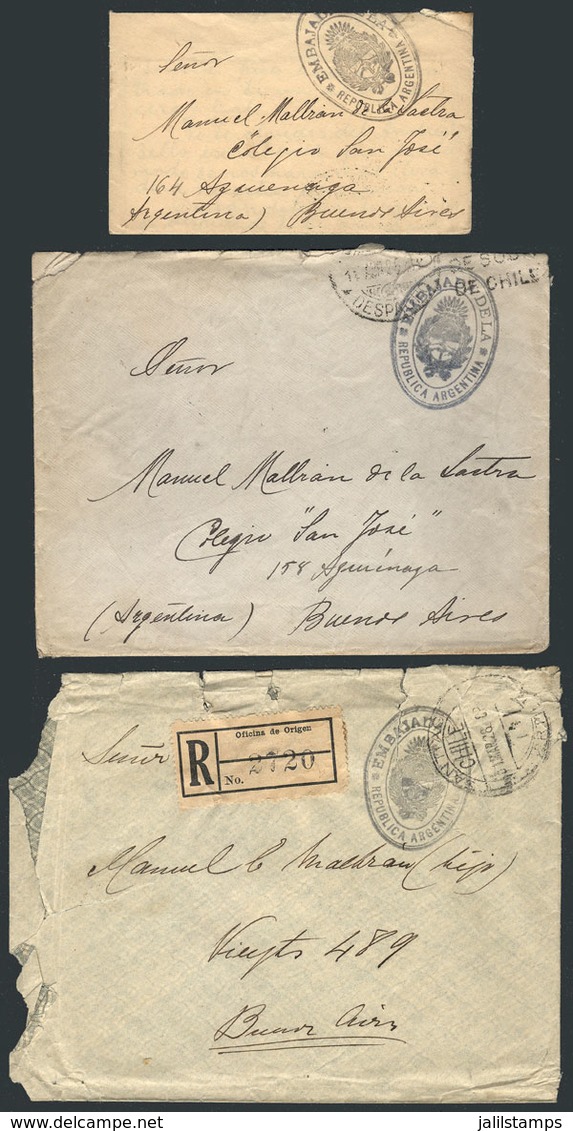 EMBAJADA DE LA
REPUBLICA ARGENTINA
Señor
Manuel Mallrán de la Lastra
Colegio "San José"
164 Azcuénaga
Argentina) Buenos Aires
DE CHILE
EMBAJADA DE LA
REPUBLICA ARGENTINA
Señor
Manuel Mallrán de la Lastra
Colegio "San José"
158 Azcuénaga
(Argentina) Buenos Aires
Oficina de Origen
R
No. 2720
EMBAJADA
REPUBLICA ARGENTINA
CHILE
Señor
Manuel E Mallran (hijo)
Vieyts 489
Buenos Aires
jalilstamps